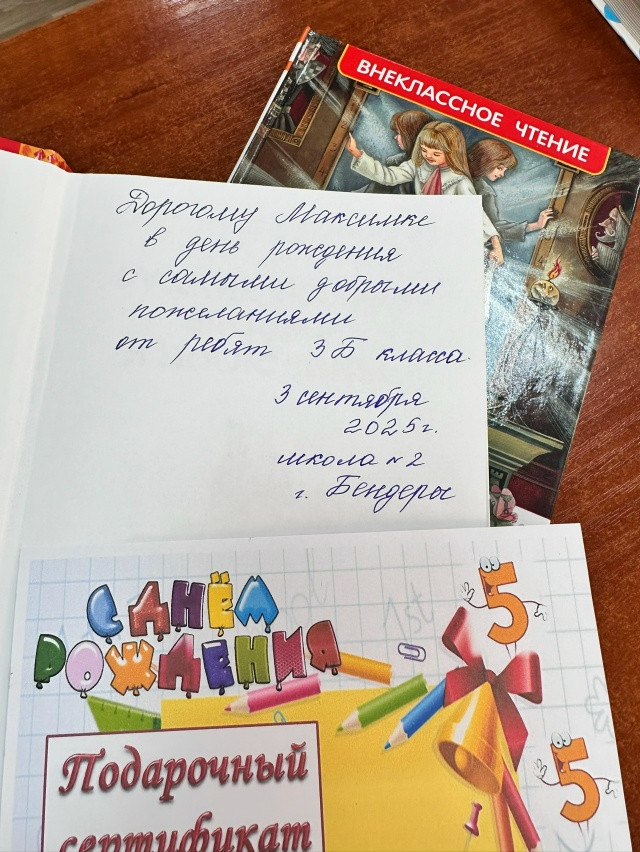 ВНЕКЛАССНОЕ ЧТЕНИЕ
Дорогому Максимке
в день рождения
с самыми добрыми
пожеланиями
от ребят 3 Б класса.
3 сентября
2025 г.
школа № 2
г. Бендеры
С ДНЁМ
РОЖДЕНИЯ
1st
5
5
Подарочный
сертификат